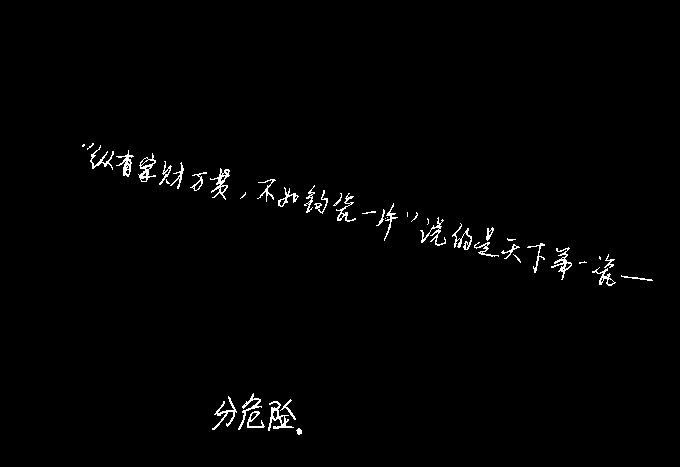 “纵有家财万贯,不如钧瓷一片”说的是天下第一瓷—
分危险.